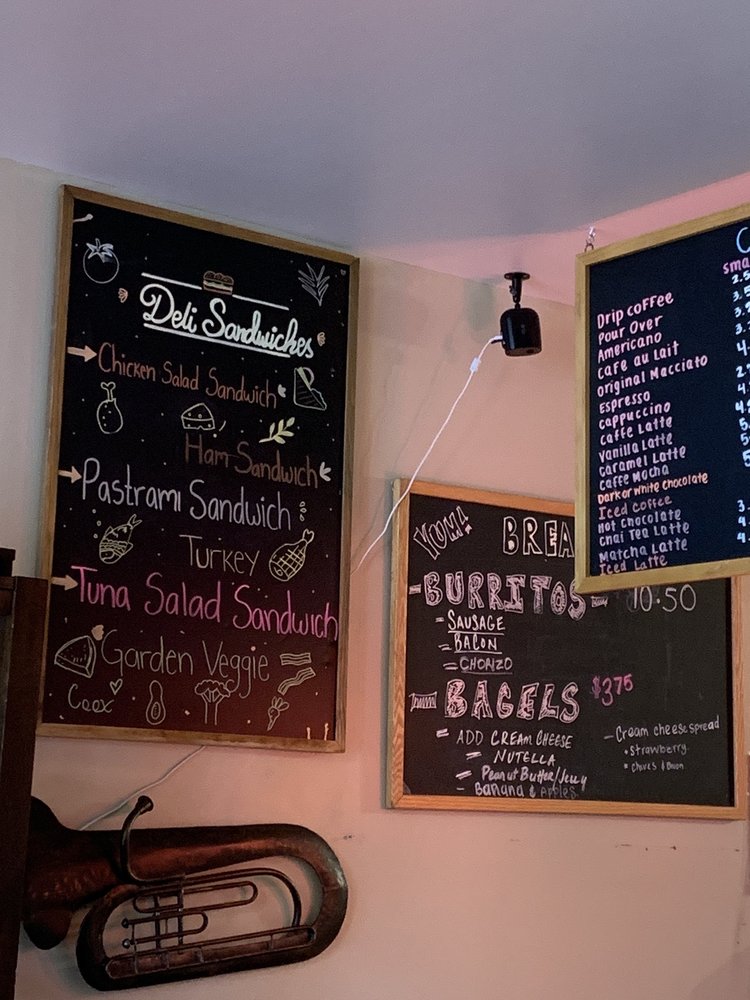 Deli Sandwiches
Chicken Salad Sandwich
Ham Sandwich
Pastrami Sandwich
Turkey
Tuna Salad Sandwich
Garden Veggie
YUM!
BREA
- BURRITOS
10.50
- SAUSAGE
- BACON
- CHORIZO
BAGELS $375
- ADD CREAM CHEESE
- NUTELLA
- Peanut Butter/Jelly
- Banana & Apples
- Cream cheese spread
• strawberry
C
sma
Drip coffee
Pour Over
Americano
Cafe au Lait
Original Macciato
Espresso
Cappuccino
Caffe Latte
Vanilla Latte
Caramel Latte
Caffe Mocha
Dark or White chocolate
Iced coffee
Hot chocolate
Chai Tea Latte
Matcha Latte
Iced Latte